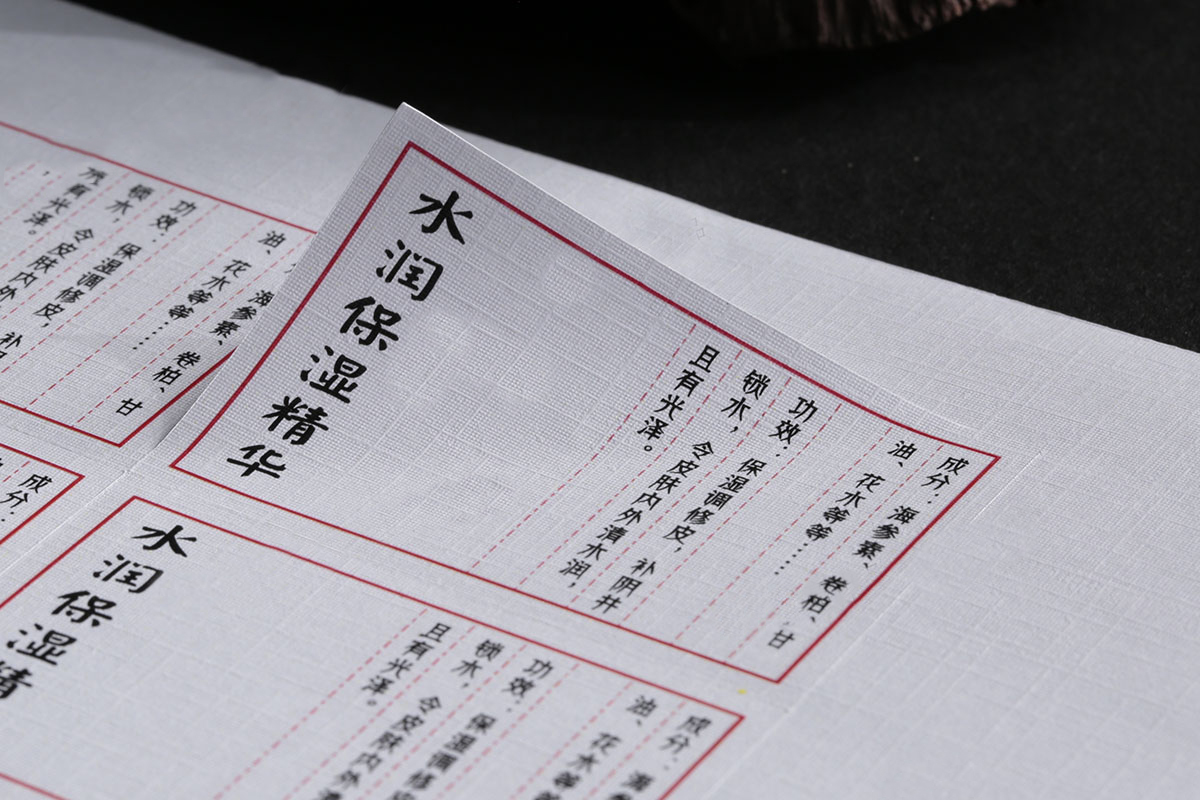 成分：海参素、卷柏、甘
油、花水等等……
功效：保湿调修皮，补阴井
锁水，令皮肤内外清水润，
且有光泽。
水润保湿精华
海参素、卷柏、甘
油、花水等等……
功效：保湿调修皮，补阴
锁水，令皮肤内外
有光泽。
成分：海
油、花水等
功效：保湿调修
锁水，令皮肤内外清
且有光泽。
水润保湿精
成分：